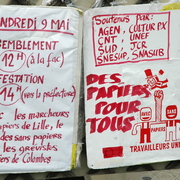 VENDREDI 9 MAI
RASSEMBLEMENT
12H (à la fac)
14H (vers la préfecture)
avec les marcheurs
papiers de Lille, le
des sans papiers
les grévistes
de Colombes
Soutenus par:
AGEN, CULTUR PX
CNT, UNEF
SUD, JCR
SNESUP, SNASUB
DES
PAPIERS
POUR
TOUS
AVEC
SANS
PAPIERS
TRAVAILLEURS UNI